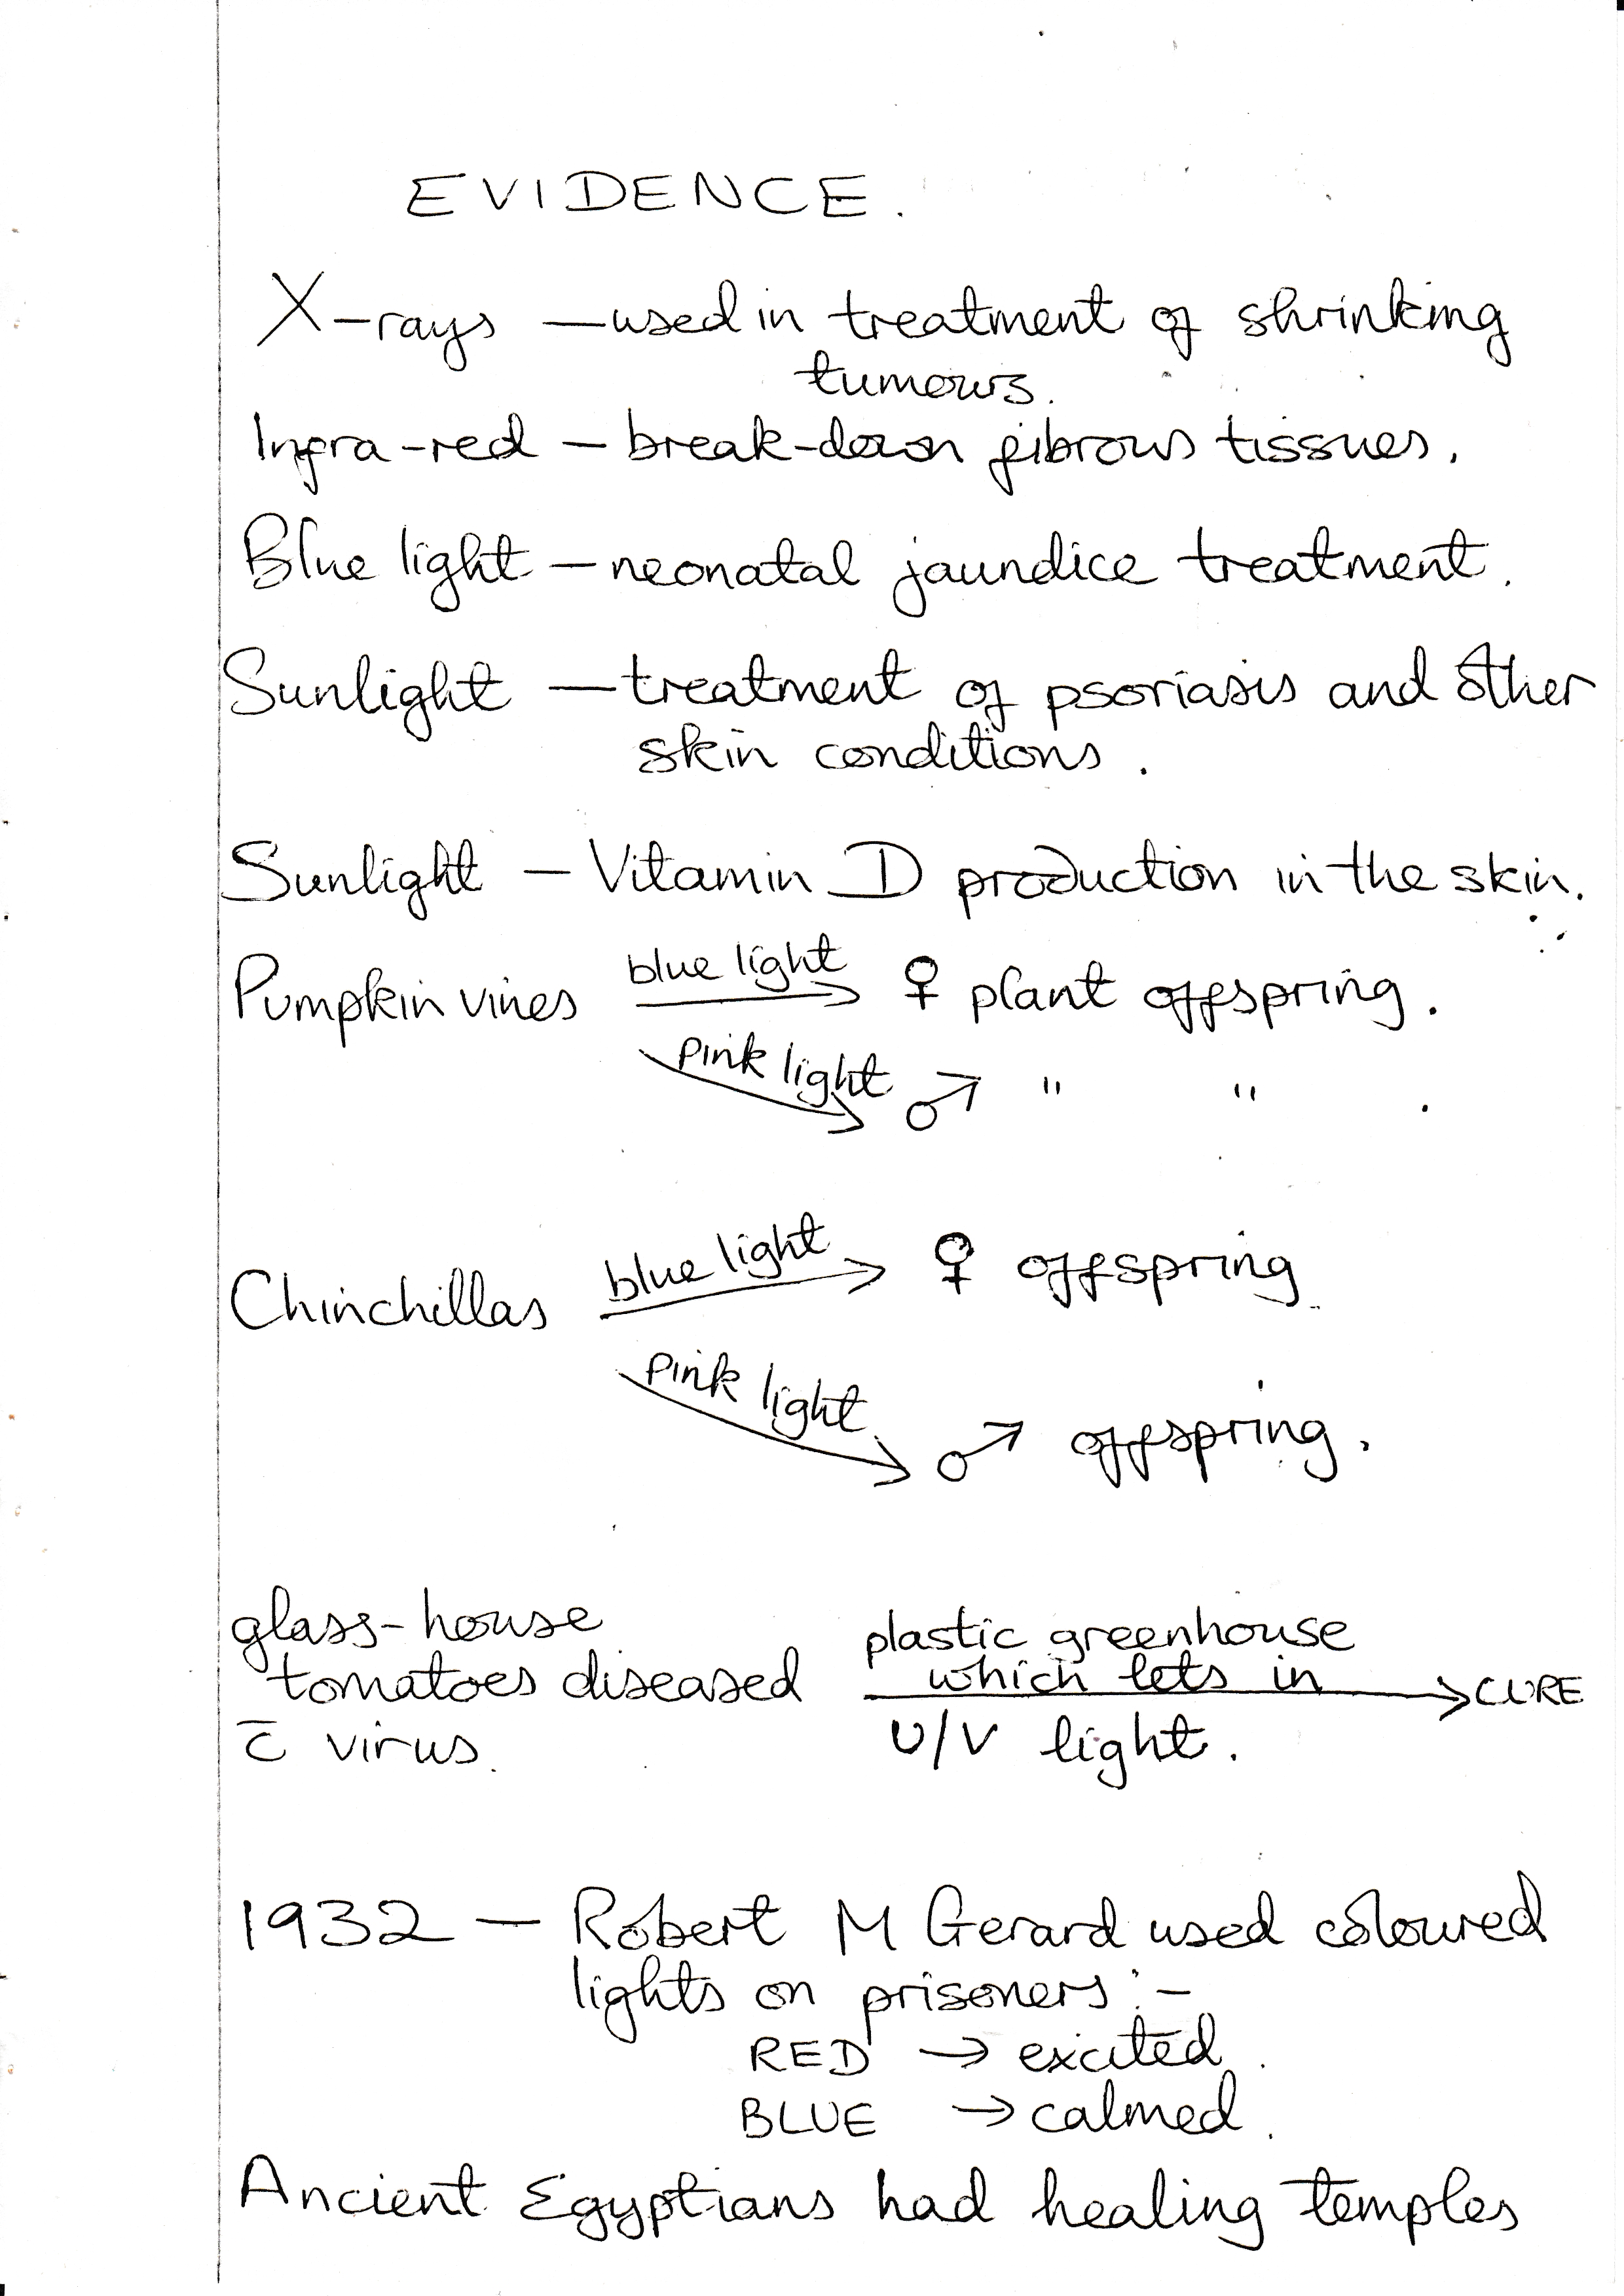 EVIDENCE.
X-rays — used in treatment of shrinking
tumours.
Infra-red — break-down fibrous tissues.
Blue light — neonatal jaundice treatment.
Sunlight — treatment of psoriasis and other
skin conditions.
Sunlight — Vitamin D production in the skin.
Pumpkin vines blue light → ♀ plant offspring.
pink light → ♂ " " .
Chinchillas blue light → ♀ offspring
pink light → ♂ offspring.
glass-house
tomatoes diseased
c̄ virus.
plastic greenhouse
which lets in → CURE
U/V light.
1932 — Robert M Gerard used coloured
lights on prisoners :-
RED → excited.
BLUE → calmed.
Ancient Egyptians had healing temples